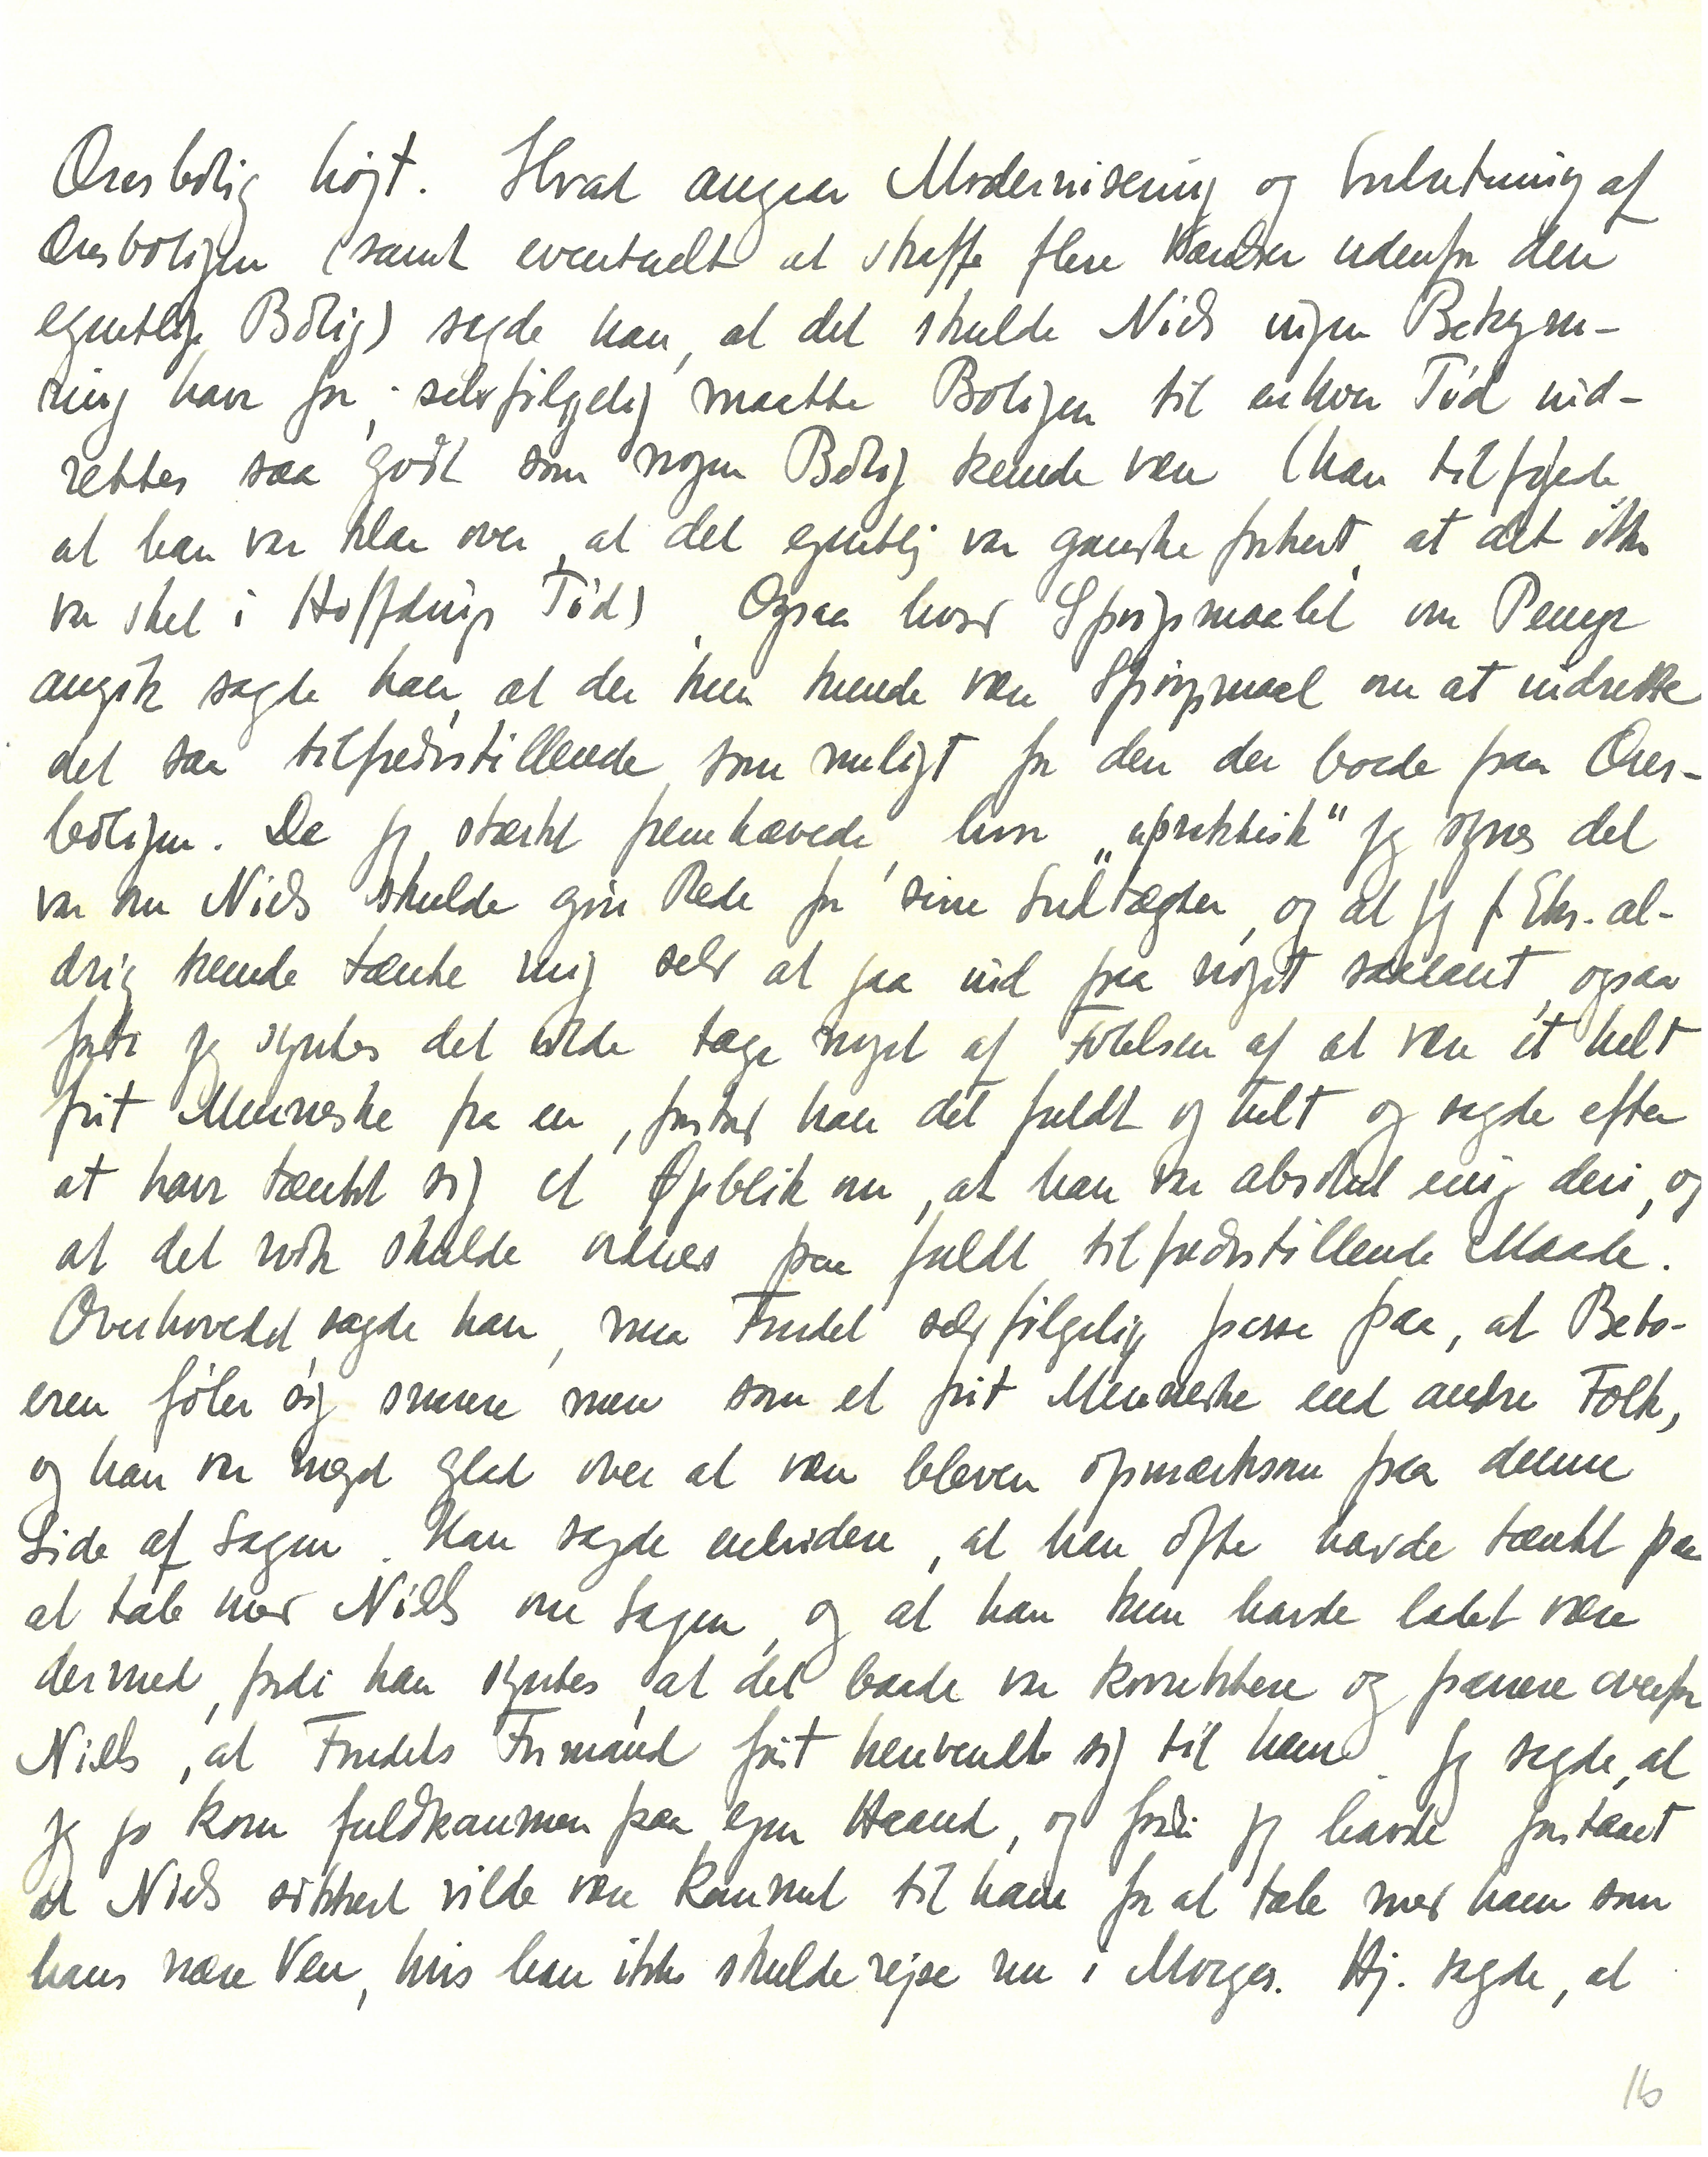 Æresbolig højt. Hvad angaar Modernisering og Indretning af
Æresboligen (samt eventuelt at skaffe flere Værelser udenfor den
egentlige Bolig) sagde han, at det skulde Niels ingen Bekym-
ring have for; selvfølgelig maatte Boligen til enhver Tid ind-
rettes saa godt som nogen Bolig kunde være (han tilføjede
at han var klar over, at det egentlig var ganske forkert, at det ikke
var sket i Høffdings Tid). Ogsaa hvad Spørgsmaalet om Penge
angik sagde han, at der kun kunde være Spørgsmaal om at indrette
det saa tilfredsstillende som muligt for den der boede paa Æres-
boligen. Da jeg stærkt fremhævede, hvor "upraktisk" jeg synes det
var om Niels skulde gøre Rede for sine Indtægter, og at jeg f. Eks. al-
drig kunde tænke mig selv at gaa ind paa noget saadant, ogsaa
fordi jeg syntes det vilde tage noget af Følelsen af at være et helt
frit Menneske fra en, forstod han det fuldt og helt og sagde efter
at have tænkt sig et Øjeblik om, at han var absolut enig deri, og
at det nok skulde ordnes paa fuldt tilfredsstillende Maade.
Overhovedet, sagde han, maa Fondet selvfølgelig passe paa, at Bebo-
eren føler sig snarere mere som et frit Menneske end andre Folk,
og han var meget glad over at være bleven opmærksom paa denne
Side af Sagen. Han sagde endvidere, at han ofte havde tænkt paa
at tale med Niels om Sagen, og at han kun havde ladet være
dermed, fordi han syntes, at det baade var korrektere og pænere overfor
Niels, at Fondets Formand først henvendte sig til ham. Jeg sagde, at
jeg jo kom fuldkommen paa egen Haand, og fordi jeg havde forstaaet
at Niels sikkert vilde være kommet til ham for at tale med ham som
hans nære Ven, hvis han ikke skulde rejse nu i Morges. Hj. sagde, at
16